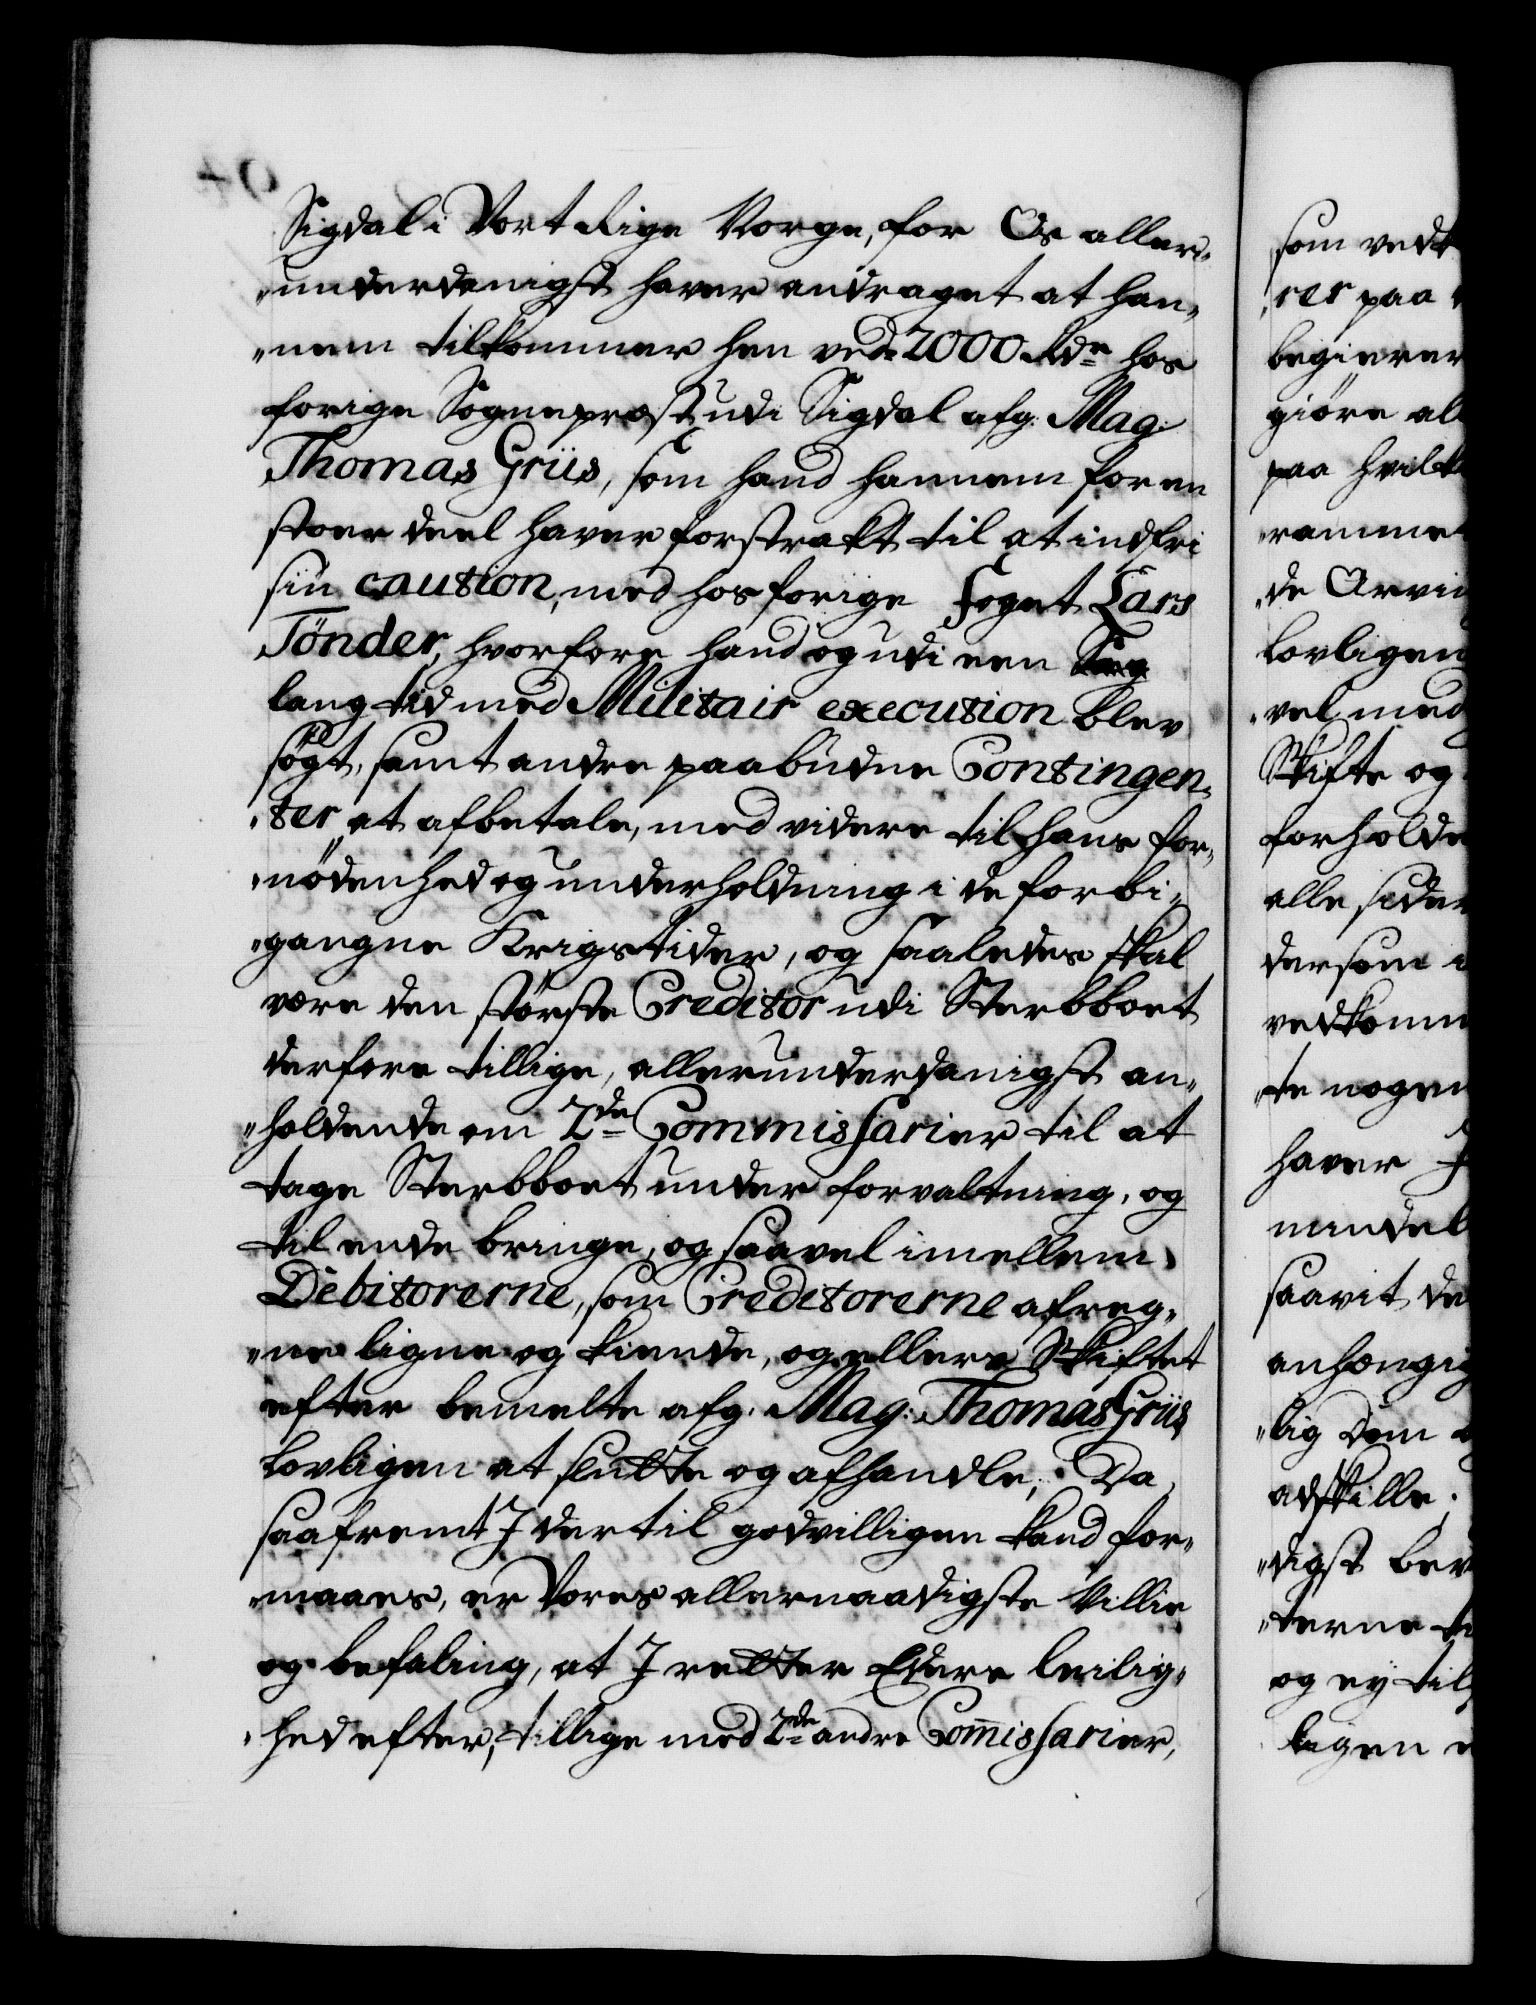 Sigdal i Vort Rige Norge, for Os aller„
„underdanigst haver andraget at han„
„nem tilkommer hen ved 2000 Rdr hos
forige Sognepræst udi Sigdal afg: Mag:
Thomas Grüs, som hand hannem for en
stoer deel haver forstrakt til at indfri
sin caution, med hos forige Foget Lars
Tönder, hvorfore hand og udi een
lang tid med Militair execution blev
sögt, samt andre paabudne Contingen„
„ter at afbetale, med videre til hans for„
„nödenhed og underholdning i de forbi„
„gangne Krigstider, og saaledes skal
være den störste Creditor udi Sterbboet
derfore tillige, allerunderdanigst an„
„holdende om 2de Commissarier til at
tage Sterbboet under forvaltning, og
til ende bringe, og saavel imellem
Debitorerne, som Creditorerne afreg„
„ne ligne og kiende, og ellers Skiftet
efter bemelte afg. Mag: Thomas Grüs
lovligen at slutte og afhandle; Da
saafremt I dertil godvilligen kand for„
„maaes, er Vores allernaadigste Villie
og befaling, at I retter Eders leilig„
„hed efter, tillige med 2de andre Com̅issarier,
som vedk
rer paa
begierer
giöre al
paa hvilk
„ramme
„de Arvin
lovligen
„vel med
Skifte og
forholde
alle sider
dersom
vedkomm
„te nogen
haver I
mindel
saavit de
anhængig
„lig Dom
adskille.
„digst bev
„terne
og ey til
ligen